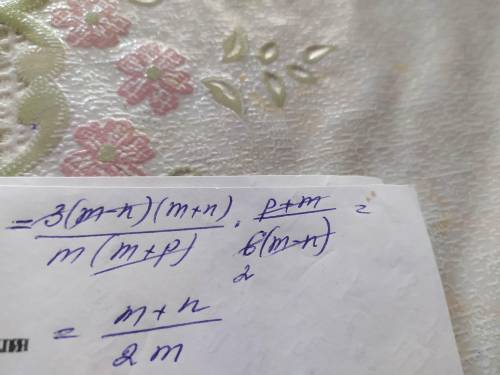 = 3(m-n)(m+n) / m(m+p) · p+m / 6(m-n) =
2
= m+n / 2m